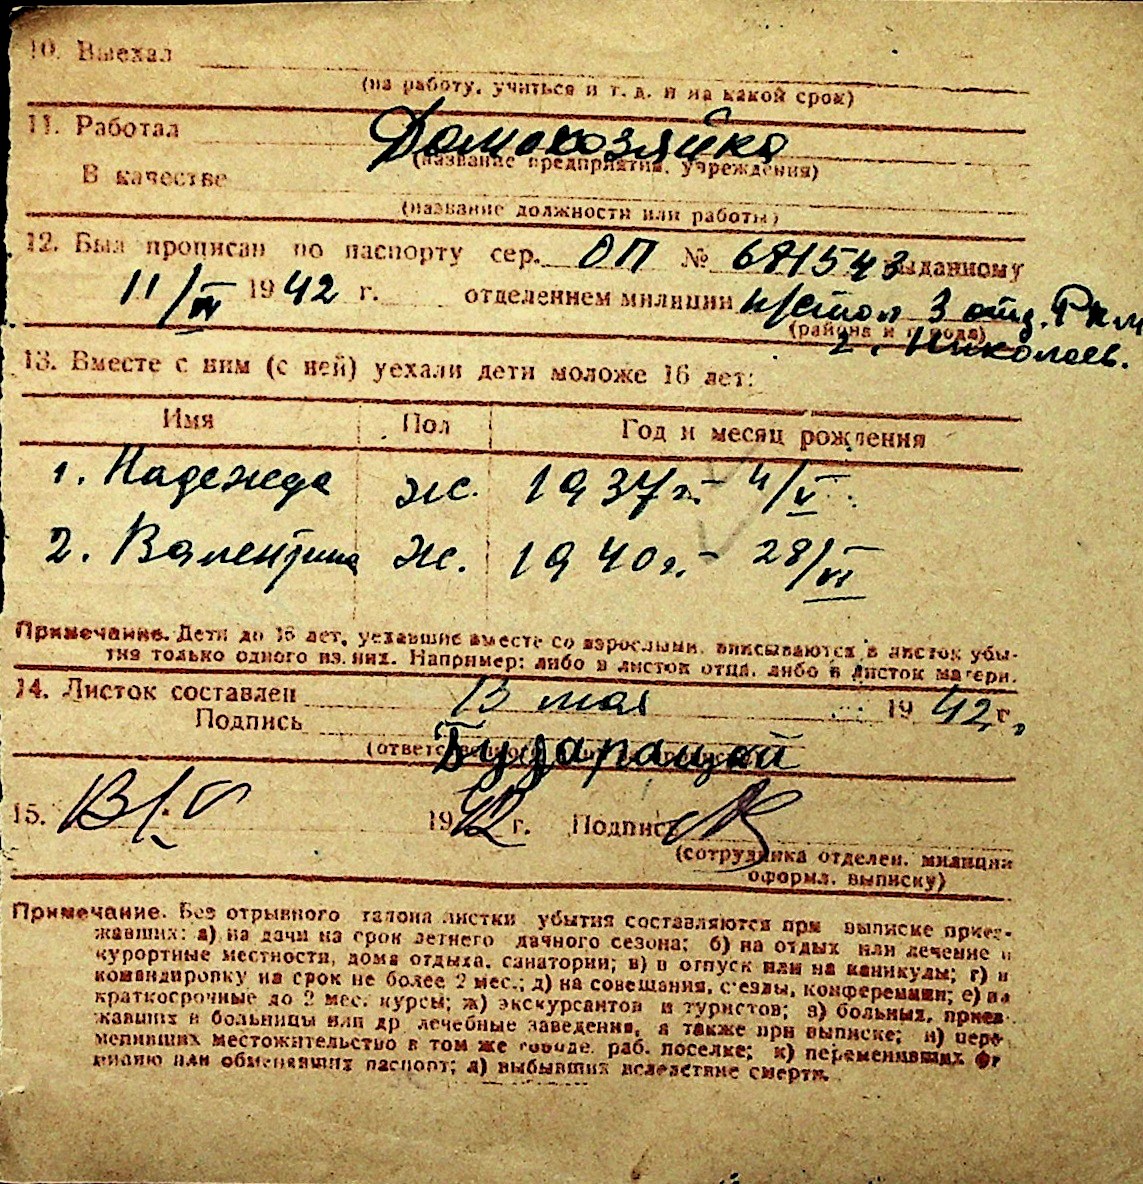 10. Выехал
(на работу, учиться и т. д. и на какой срок)
11. Работал Домохозяйка
(название предприятия, учреждения)
В качестве
(название должности или работы)
12. Был прописан по паспорту сер. ОП № 681543 выданному
11/VI 1942 г. отделением милиции 3 отд. РКМ
(района и города)
г. Николаев.
13. Вместе с ним (с ней) уехали дети моложе 16 лет:
Имя Пол Год и месяц рождения
1. Надежда ж. 1937 г. - 4/V
2. Валентина ж. 1940 г. - 28/VI
Примечание. Дети до 16 лет, уехавшие вместе со взрослыми, вписываются в листок убы-
тия только одного из них. Например: либо в листок отца, либо в листок матери.
14. Листок составлен 13 мая 1942 г.
Подпись
(ответственного
15. 1942 г. Подпись
(сотрудника отделен. милиции
оформл. выписку)
Примечание. Без отрывного талона листки убытия составляются при выписке приез-
жавших: а) на дачи на срок летнего дачного сезона; б) на отдых или лечение в
курортные местности, дома отдыха, санатории; в) в отпуск или на каникулы; г) в
командировку на срок не более 2 мес.; д) на совещания, с'езды, конференции; е) на
краткосрочные до 2 мес. курсы; ж) экскурсантов и туристов; з) больных, приез-
жавших в больницы или др лечебные заведения, а также при выписке; и) пере-
менивших местожительство в том же городе, раб. поселке; к) переменивших фа
милию или обменявших паспорт; л) выбывших вследствие смерти.